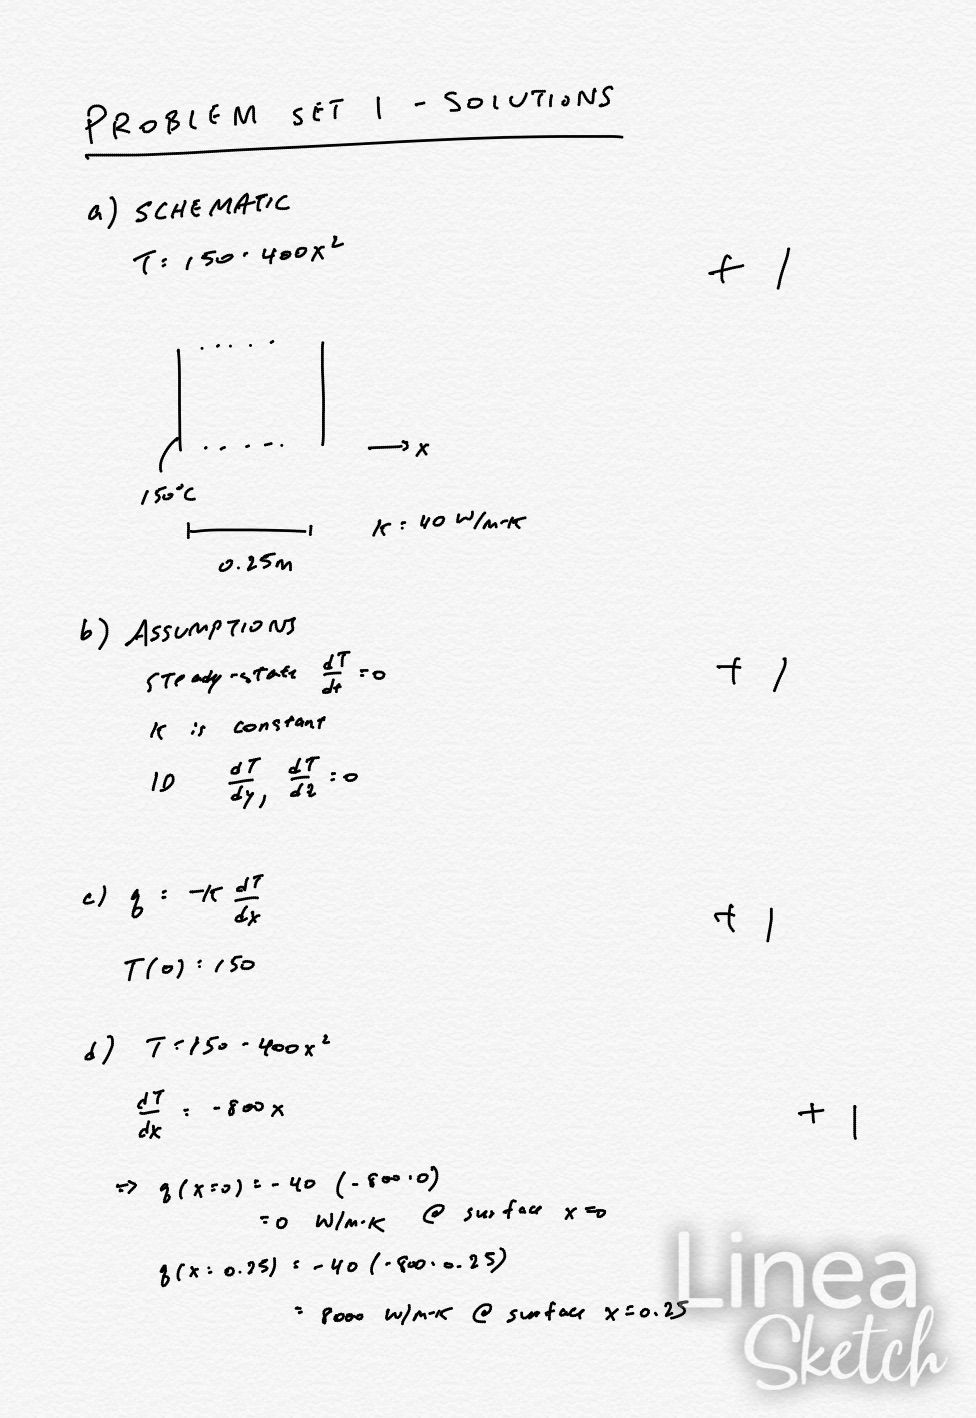 PROBLEM SET 1 - SOLUTIONS
a) SCHEMATIC
T = 150 - 400x²
+ 1
→ x
150°C
K = 40 W/m-K
0.25m
b) ASSUMPTIONS
Steady-state dT/dt = 0
+ 1
K is constant
1D dT/dy, dT/dz = 0
c) q = -K dT/dx
+ 1
T(0) = 150
d) T = 150 - 400x²
dT/dx = -800x
+ 1
=> q(x=0) = -40 (-800·0)
= 0 W/m-K @ surface x=0
q(x=0.25) = -40 (-800·0.25)
= 8000 W/m-K @ surface x=0.25
Linea
Sketch